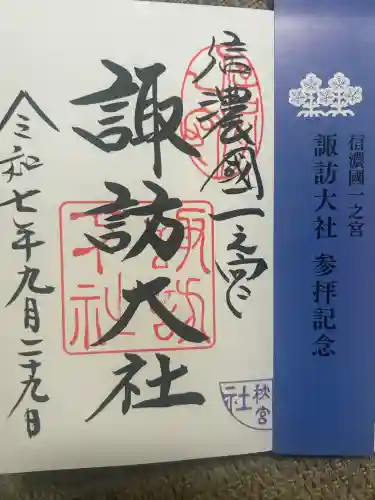 信濃國一之宮
諏訪大社 参拝記念
信濃國一之宮
諏訪大社
令和七年九月二十九日
諏訪大社
秋宮
社